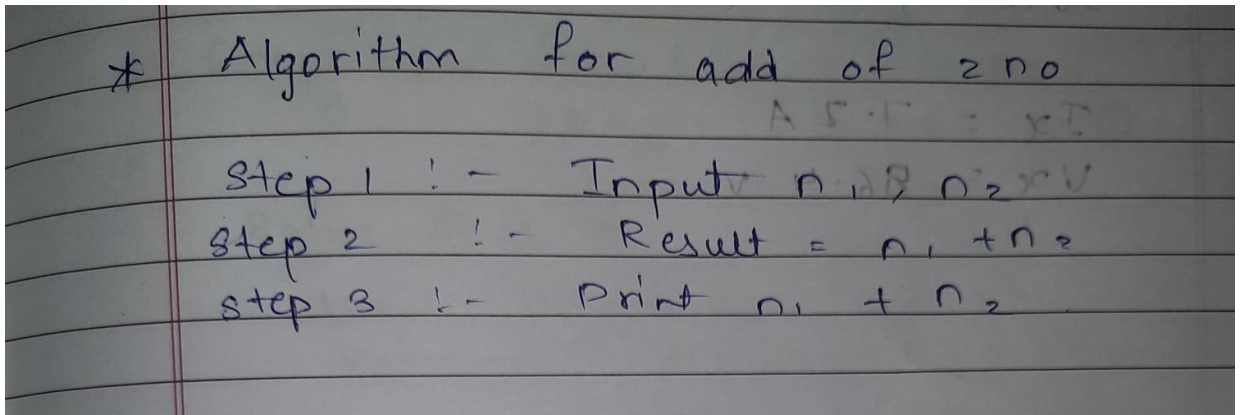 * Algorithm for add of 2 no
Step 1 :- Input n1, n2
Step 2 :- Result = n1 + n2
Step 3 :- Print n1 + n2